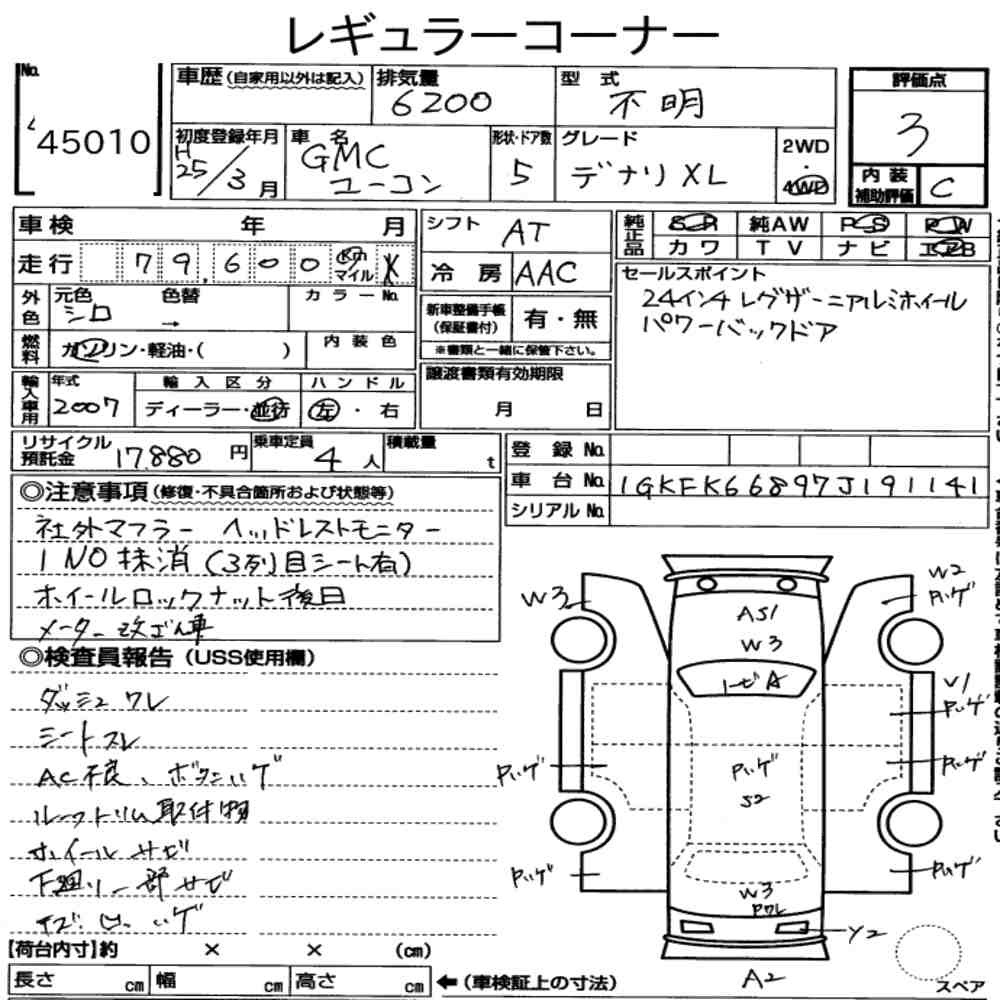 レギュラーコーナー
No. 45010
車歴(自家用以外は記入)
排気量 6200
型 式 不明
評価点 3
初度登録年月 H25/3月
車 名 GMC ユーコン
形状・ドア数 5
グレード デナリ XL
2WD・4WD
内装補助評価 C
車検 年 月
シフト AT
純正品 SR 純AW PS PW
カワ TV ナビ エアB
走行 79,600 Km マイル X
冷房 AAC
セールスポイント
24インチ レグザーニアルミホイール
パワーバックドア
外色 元色 シロ 色替 → カラーNo.
新車整備手帳(保証書付) 有・無
※書類と一緒に保管下さい。
燃料 ガソリン・軽油・( ) 内装色
譲渡書類有効期限 月 日
輸入車用 年式 2007 輸入区分 ディーラー・並行 ハンドル 左・右
リサイクル預託金 17,880円
乗車定員 4人
積載量 t
登録No.
車台No. 1GKFK66897J191141
シリアルNo.
◎注意事項(修復・不具合箇所および状態等)
社外マフラー ヘッドレストモニター
1NO抹消(3列目シート有)
ホイールロックナット後日
メーター改ざん車
◎検査員報告(USS使用欄)
ダッシュワレ
シートスレ
AC不良、ボタンハゲ
ルーフトリム取付物
ホイールサビ
下廻り一部サビ
W3
W2
Pハゲ
AS1
W3
Pハゲ
Pハゲ
Pハゲ
Pハゲ
S2
Pハゲ
Pハゲ
W3
Pワレ
Y2
A2
スペア
【荷台内寸】約 × × (cm)
長さ cm 幅 cm 高さ cm ←(車検証上の寸法)